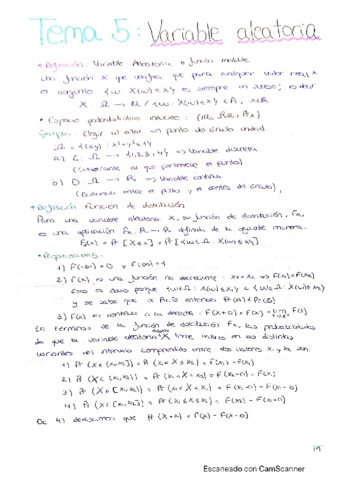 Tema 5: Variable aleatoria
• Definición: Variable Aleatoria o función medible
Una función X que verifica que para cualquier valor real x
el conjunto {w X(w)≤x} es siempre un suceso, es decir
X: Ω → R / {w: X(w)≤x} ∈ A, x∈R
• Espacio probabilístico inducido: (R, , Px)
Ejemplo: Elegir al azar un punto del círculo unidad
Ω = {(x,y): x²+y²≤1}
a) C: Ω → {1,2,3,4} → Variable discreta
(Cuadrante al que pertenece el punto)
b) D: Ω → R → Variable continua
(Distancia entre el punto y el centro del círculo)
• Definición Función de distribución
Para una variable aleatoria X, su función de distribución, Fx,
es una aplicación Fx: R → R definida de la siguiente manera:
Fx(x) = P[X≤x] = P[{w∈Ω: X(w)≤x}]
• Propiedades:
1) F(-∞) = 0 y F(∞) = 1
2) F(x) es una función no decreciente: x₁<x₂ ⇒ F(x₁)≤F(x₂)
Esto es claro porque {w∈Ω: X(w)≤x₁} ⊂ {w∈Ω: X(w)≤x₂}
y se sabe que si A⊂B entonces P(A)≤P(B)
3) F(x) es continua a la derecha: F(x+0) = F(x) =
En términos de la función de distribución Fx, las probabilidades
de que la variable aleatoria X tome valores en las distintas
variantes del intervalo comprendido entre dos valores x₁ y x₂ son:
1) P(X∈(x₁,x₂]) = P(x₁<X≤x₂) = F(x₂) - F(x₁)
2) P(X∈(x₁,x₂)) = P(x₁<X<x₂) = F(x₂-0) - F(x₁)
3) P(X∈[x₁,x₂)) = P(x₁≤X<x₂) = F(x₂-0) - F(x₁-0)
4) P(X∈[x₁,x₂]) = P(x₁≤X≤x₂) = F(x₂) - F(x₁-0)
De 4) deducimos que P(X=x) = F(x) - F(x-0)
Escaneado con CamScanner